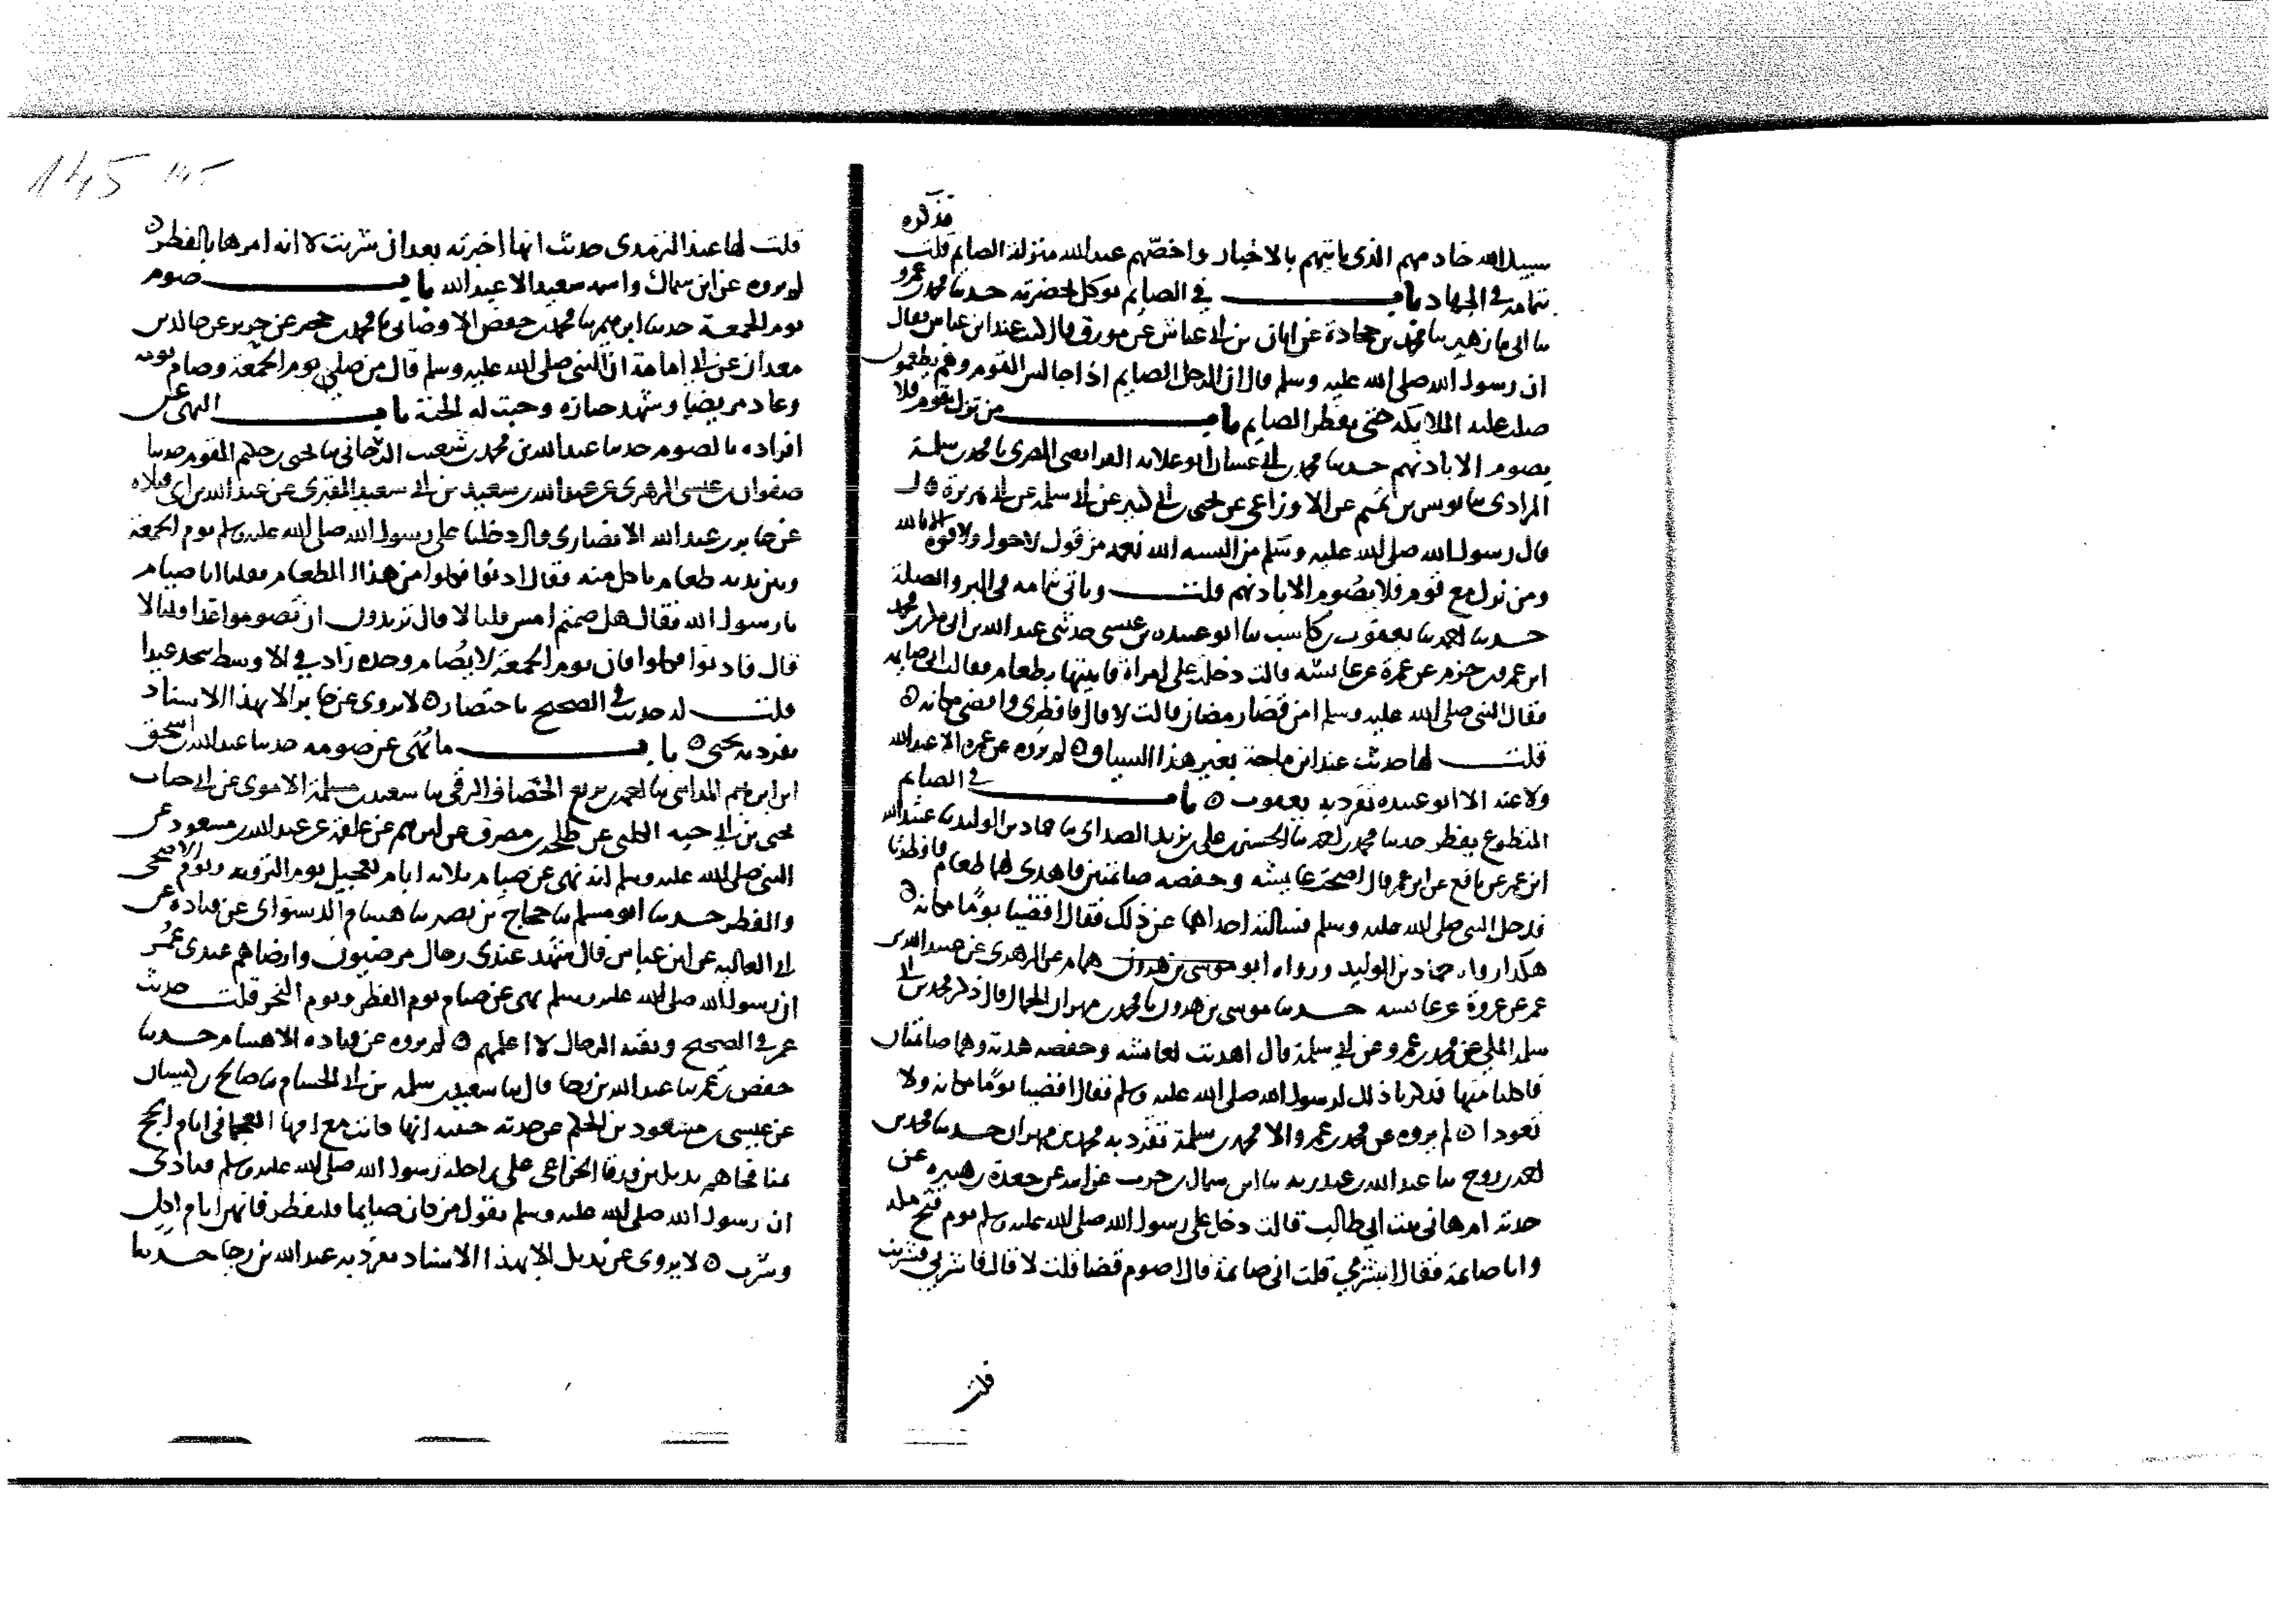 فذكره
سبيل الله خادمهم الذي ياتيهم بالاخبار واخصّهم عند الله منزلة الصايم قلت
تمامه في الجهاد باب في الصايم يوكل بحضرته حدثنا محمد بن عمرو
نا ابي نا زهير نا محمد بن جحادة عن ابان بن ابي عياش عن مورق قال كنت عند ابن عباس فقال
ان رسول الله صلى الله عليه وسلم قال ان الرجل الصايم اذا جالس القوم وهم يطعمون
صلت عليه الملايكة حتى يفطر الصايم باب من نزل بقوم فلا
يصوم الا باذنهم حدثنا محمد بن ابي غسان ابو علاثة الفرايضي المصري نا محمد بن سلمة
المرادي نا يونس بن تميم عن الاوزاعي عن يحيى بن ابي كثير عن ابي سلمة عن ابي هريرة قال
قال رسول الله صلى الله عليه وسلم من البسه الله نعمة من قول لا حول ولا قوة الا بالله
ومن نزل مع قوم فلا يصوم الا باذنهم قلت وياتي تمامه في البر والصلة
حدثنا احمد نا يعقوب بن كاسب نا ابو عبيدة بن عيسى حدثني عبد الله بن ابي بكر بن محمد
ابن عمرو بن حزم عن عمرة عن عائشة قالت دخلت على امراة فاتيتها بطعام فقالت اني صايمة
فقال النبي صلى الله عليه وسلم امن قضاء رمضان قالت لا قال فافطري واقضي مكانه
قلت لها حديث عند ابن ماجة بغير هذا السياق لم يروه عن عمرة الا عبد الله
ولا عنه الا ابو عبيدة تفرد به يعقوب باب في الصايم
المتطوع يفطر حدثنا محمد بن احمد نا الحسين بن علي بن يزيد الصدائي نا حماد بن الوليد نا عبيد الله
ابن عمر عن نافع عن ابن عمر قال اصبحت عايشة وحفصة صائمتين فاهدي لهما طعام فافطرتا
فدخل النبي صلى الله عليه وسلم فسالته احداهما عن ذلك فقال اقضيا يومًا مكانه
هكذا رواه حماد بن الوليد ورواه ابو همام عن الزهري عن عبيد الله بن
عمر عن عروة عن عائشة حدثنا موسى بن هرون نا محمد بن مهران الجمال قال ذكر محمد بن ابي
سلمة المكي عن محمد بن عمرو عن ابي سلمة قال اهديت لعائشة وحفصة هدية وهما صائمتان
فاكلتا منها فذكرتا ذلك لرسول الله صلى الله عليه وسلم فقال اقضيا يومًا مكانه ولا
تعودا لم يروه عن محمد بن عمرو الا محمد بن سلمة تفرد به محمد بن مهران حدثنا محمد بن
احمد بن روح نا عبد الله بن عبد ربه نا ابن سماك بن حرب عن ابيه عن جعدة بن هبيرة عن
جدته ام هاني بنت ابي طالب قالت دخل علي رسول الله صلى الله عليه وسلم يوم فتح مكة
وانا صايمة فقال اشربي قلت اني صايمة قال اصوم قضا قلت لا قال فاشربي فشربت
قلت
145 ١٤٥
قلت لها عند الترمذي حديث انها اخبرته بعد ان شربت لا انه امرها بالفطر
لم يروه عن ابن سماك واسمه سعيد الا عبد الله باب صوم
يوم الجمعة حدثنا ابراهيم نا محمد بن حفص الاوصابي نا محمد بن حمير عن حريز عن خالد بن
معدان عن ابي امامة ان النبي صلى الله عليه وسلم قال من صلى يوم الجمعة وصام يومه
وعاد مريضا وشهد جنازة وجبت له الجنة باب النهي عن
افراده بالصوم حدثنا عبد الله بن محمد بن شعيب الرجاني نا يحيى بن حكيم المقوم حدثنا
صفوان بن عيسى الزهري عن عبد الله بن سعيد بن ابي سعيد المقبري عن عبد الله بن ابي قتادة
عن جابر بن عبد الله الانصاري قال دخلنا على رسول الله صلى الله عليه وسلم يوم الجمعة
وبين يديه طعام ياكل منه فقال ادنوا فكلوا من هذا الطعام فقلنا انا صيام
يا رسول الله فقال هل صمتم امس قلنا لا قال تريدون ان تصوموا غدا قلنا لا
قال فادنوا فكلوا فان يوم الجمعة لا يصام وحده زاد في الاوسط يتخذ عيدا
قلت له حديث في الصحيح باختصار لا يروى عن جابر الا بهذا الاسناد
تفرد به يحيى باب ما نهي عن صومه حدثنا عبد الله بن اسحق
ابن ابراهيم المدايني نا احمد بن بزيع الخصاف الرقي نا سعيد بن مسلمة الاموي عن ابي جناب
يحيى بن ابي حية الكلبي عن طلحة بن مصرف عن ابراهيم عن علقمة عن عبد الله بن مسعود عن
النبي صلى الله عليه وسلم انه نهى عن صيام ثلاثة ايام تعجيل يوم التروية ويوم الاضحى
والفطر حدثنا ابو مسلم نا حجاج بن نصير نا هشام الدستوائي عن قتادة عن
ابي العالية عن ابن عباس قال شهد عندي رجال مرضيون وارضاهم عندي عمر
ان رسول الله صلى الله عليه وسلم نهى عن صيام يوم الفطر ويوم النحر قلت حديث
عمر في الصحيح وبقية الرجال لا اعلمهم لم يروه عن قتادة الا هشام حدثنا
حفص بن عمر نا عبد الله بن رجا قال نا سعيد بن سلمة بن ابي الحسام نا صالح بن كيسان
عن عيسى بن مسعود بن الحكم عن جدته حبيبة انها كانت مع امها العجما في ايام الحج
بمنا فجاهم بديل بن ورقا الخزاعي على راحلة رسول الله صلى الله عليه وسلم فنادى
ان رسول الله صلى الله عليه وسلم يقول من كان صايما فليفطر فانهن ايام اكل
وشرب لا يروى عن بديل الا بهذا الاسناد تفرد به عبد الله بن رجا حدثنا